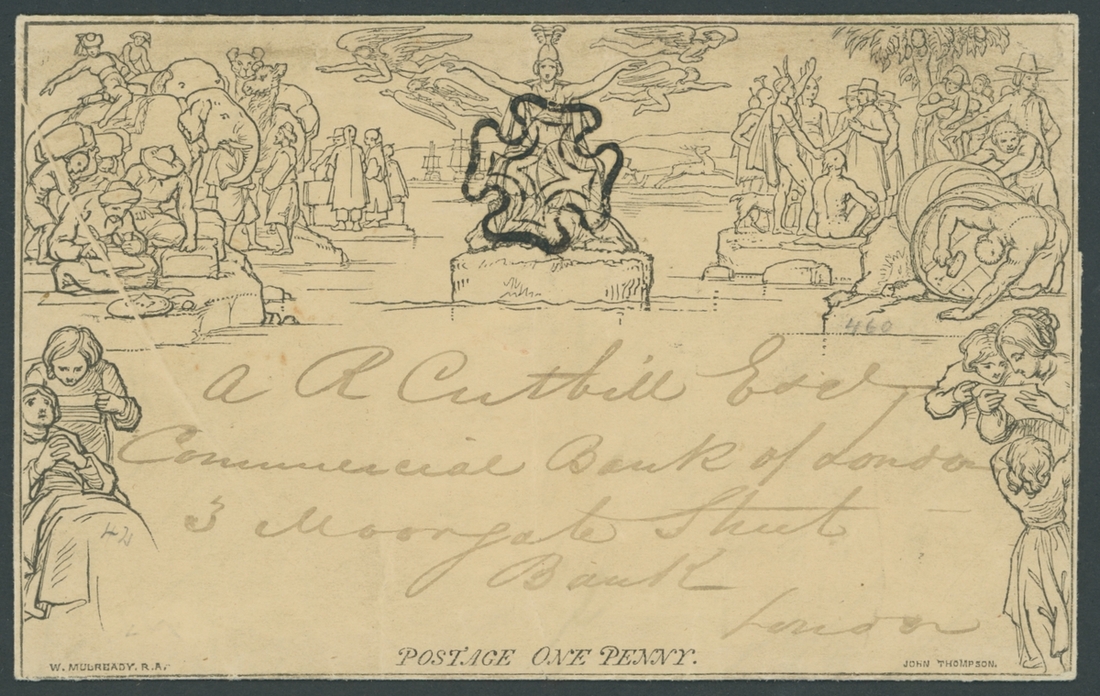 460
A R Cutbill Esqr
Commercial Bank of London
3 Moorgate Street
42
Bank
London
POSTAGE ONE PENNY.
W. MULREADY. R.A.
JOHN THOMPSON.